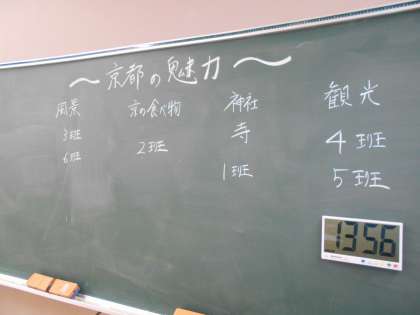 ～京都の魅力～
風景 京の食べ物 神社 観光
3班 2班 寺 4班
6班 1班 5班
13:56